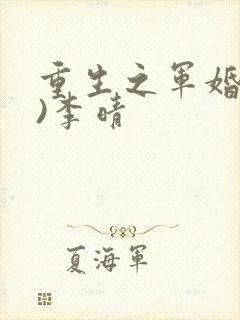 重生之军婚
)李晴
夏海军